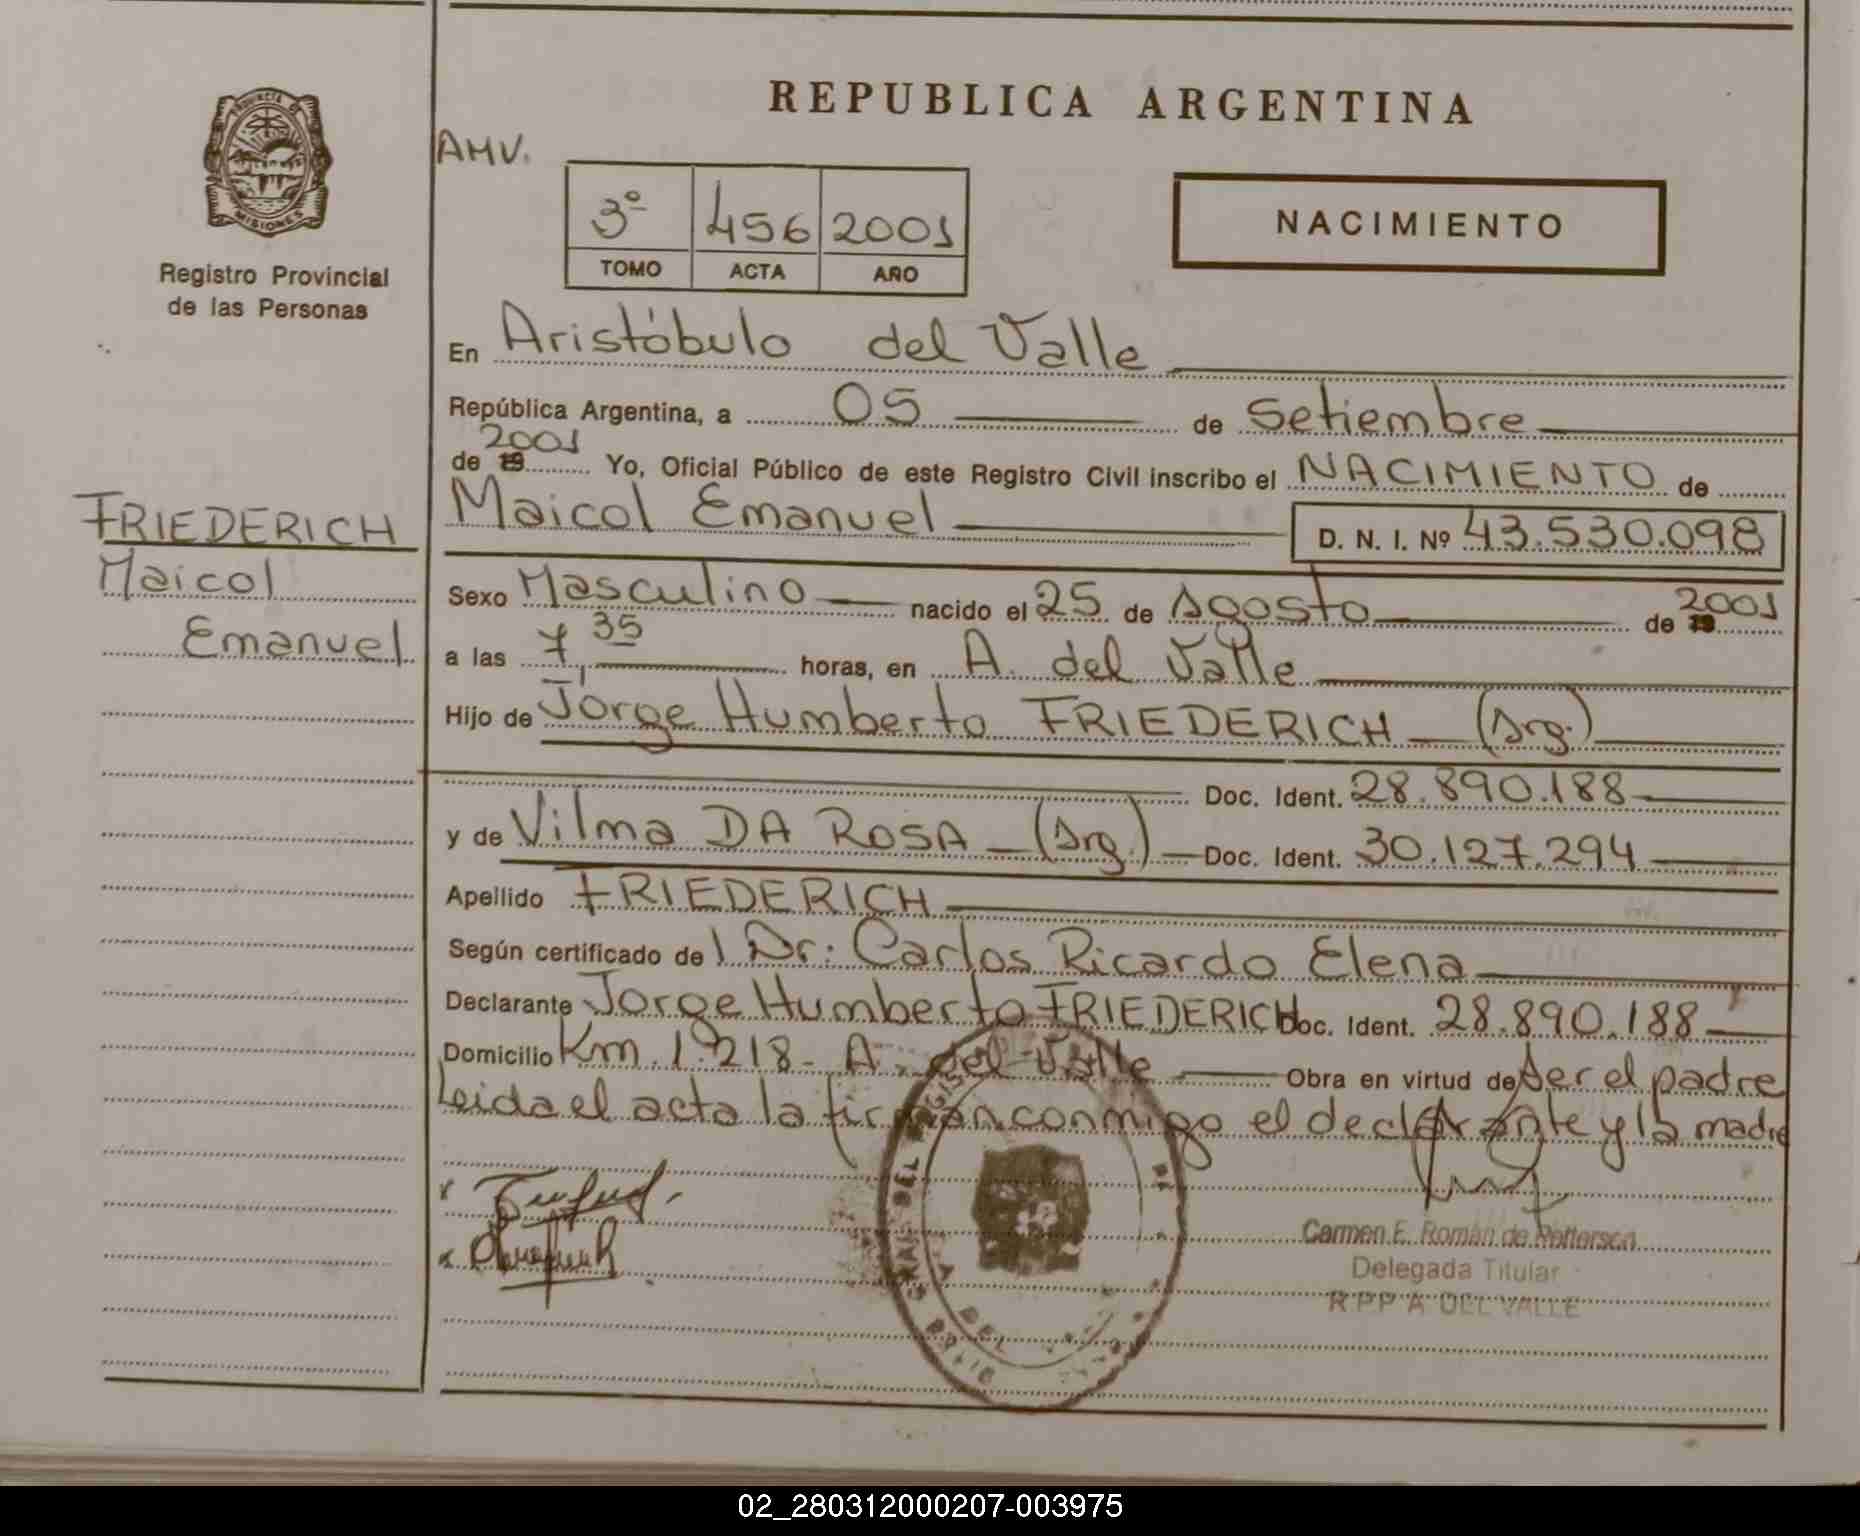 REPUBLICA ARGENTINA
PROVINCIA DE
MISIONES
Registro Provincial
de las Personas
AMV.
3º 456 2001
TOMO ACTA AÑO
NACIMIENTO
En Aristóbulo del Valle
República Argentina, a 05 de Setiembre
2001
de 19 Yo, Oficial Público de este Registro Civil inscribo el NACIMIENTO de
Maicol Emanuel D. N. I. Nº 43.530.098
FRIEDERICH
Maicol
Emanuel
Sexo Masculino nacido el 25 de Agosto de 19 2001
a las 7,35 horas, en A. del Valle
Hijo de Jorge Humberto FRIEDERICH (Arg.)
Doc. Ident. 28.890.188
y de Vilma DA ROSA (Arg.) Doc. Ident. 30.127.294
Apellido FRIEDERICH
Según certificado de l Dr: Carlos Ricardo Elena
Declarante Jorge Humberto FRIEDERICH Doc. Ident. 28.890.188
Domicilio Km. 1.218- A. del Valle Obra en virtud de Ser el padre
Leida el acta la firman conmigo el declarante y la madre
Carmen E. Román de
Delegada Titular
R.P.P. A. DEL VALLE
02_280312000207-003975